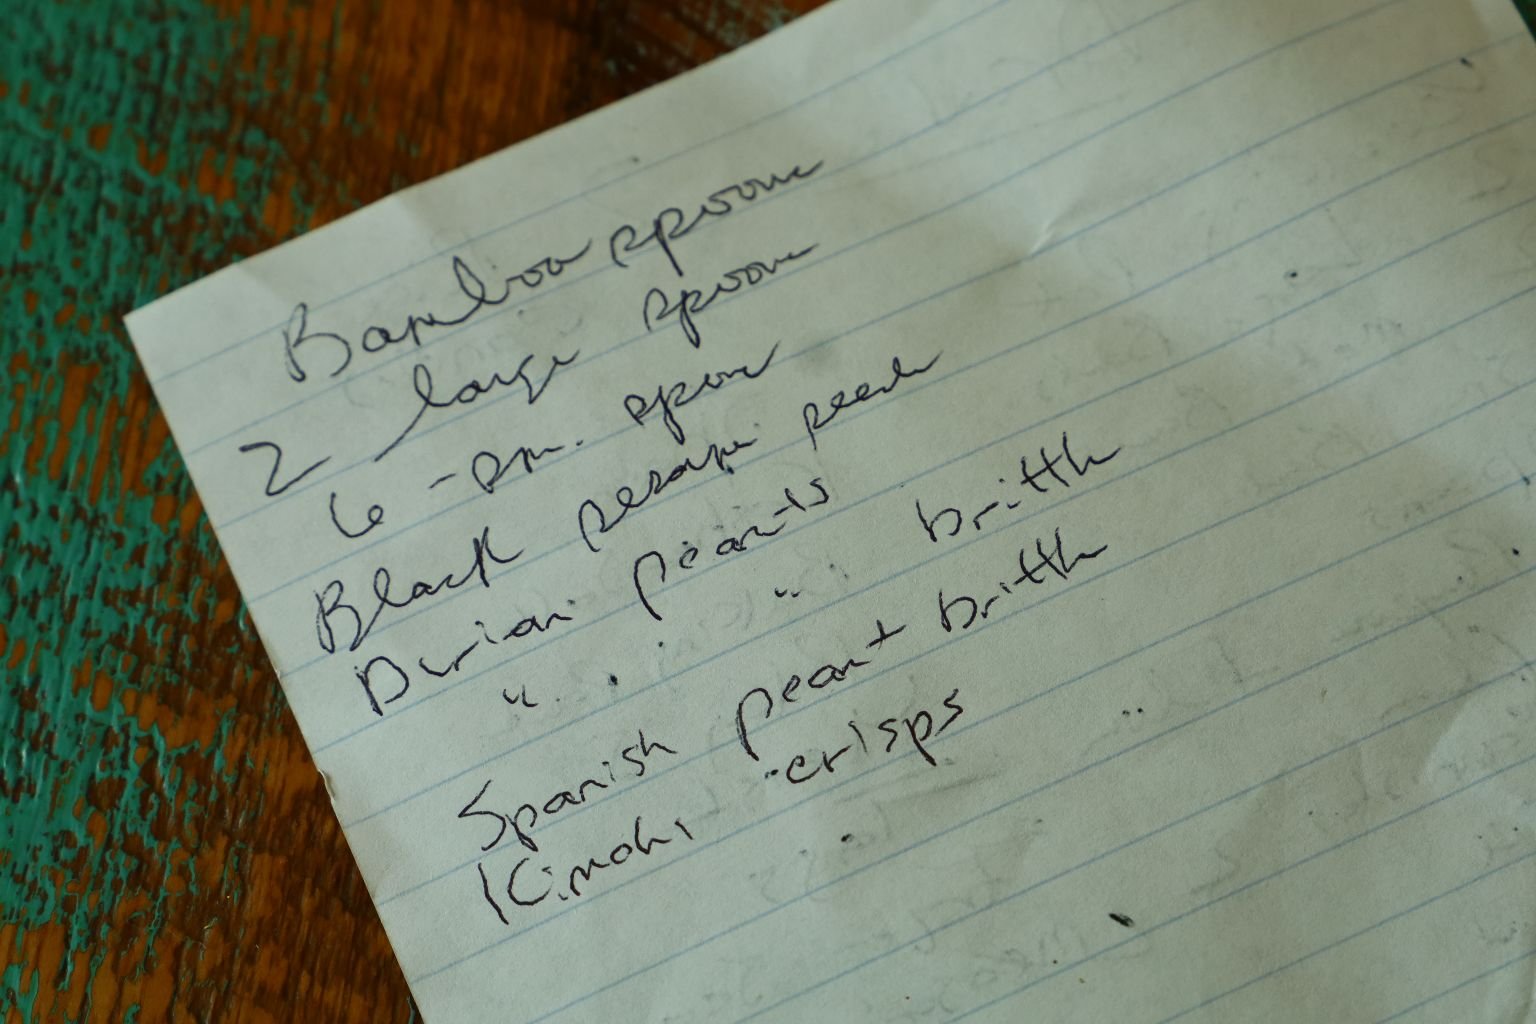 Bamboo spoons
2 large spoons
6 - sm. spoons
Black sesame seeds
Durian peanuts
" " brittle
Spanish peanut brittle
Kimchi crisps